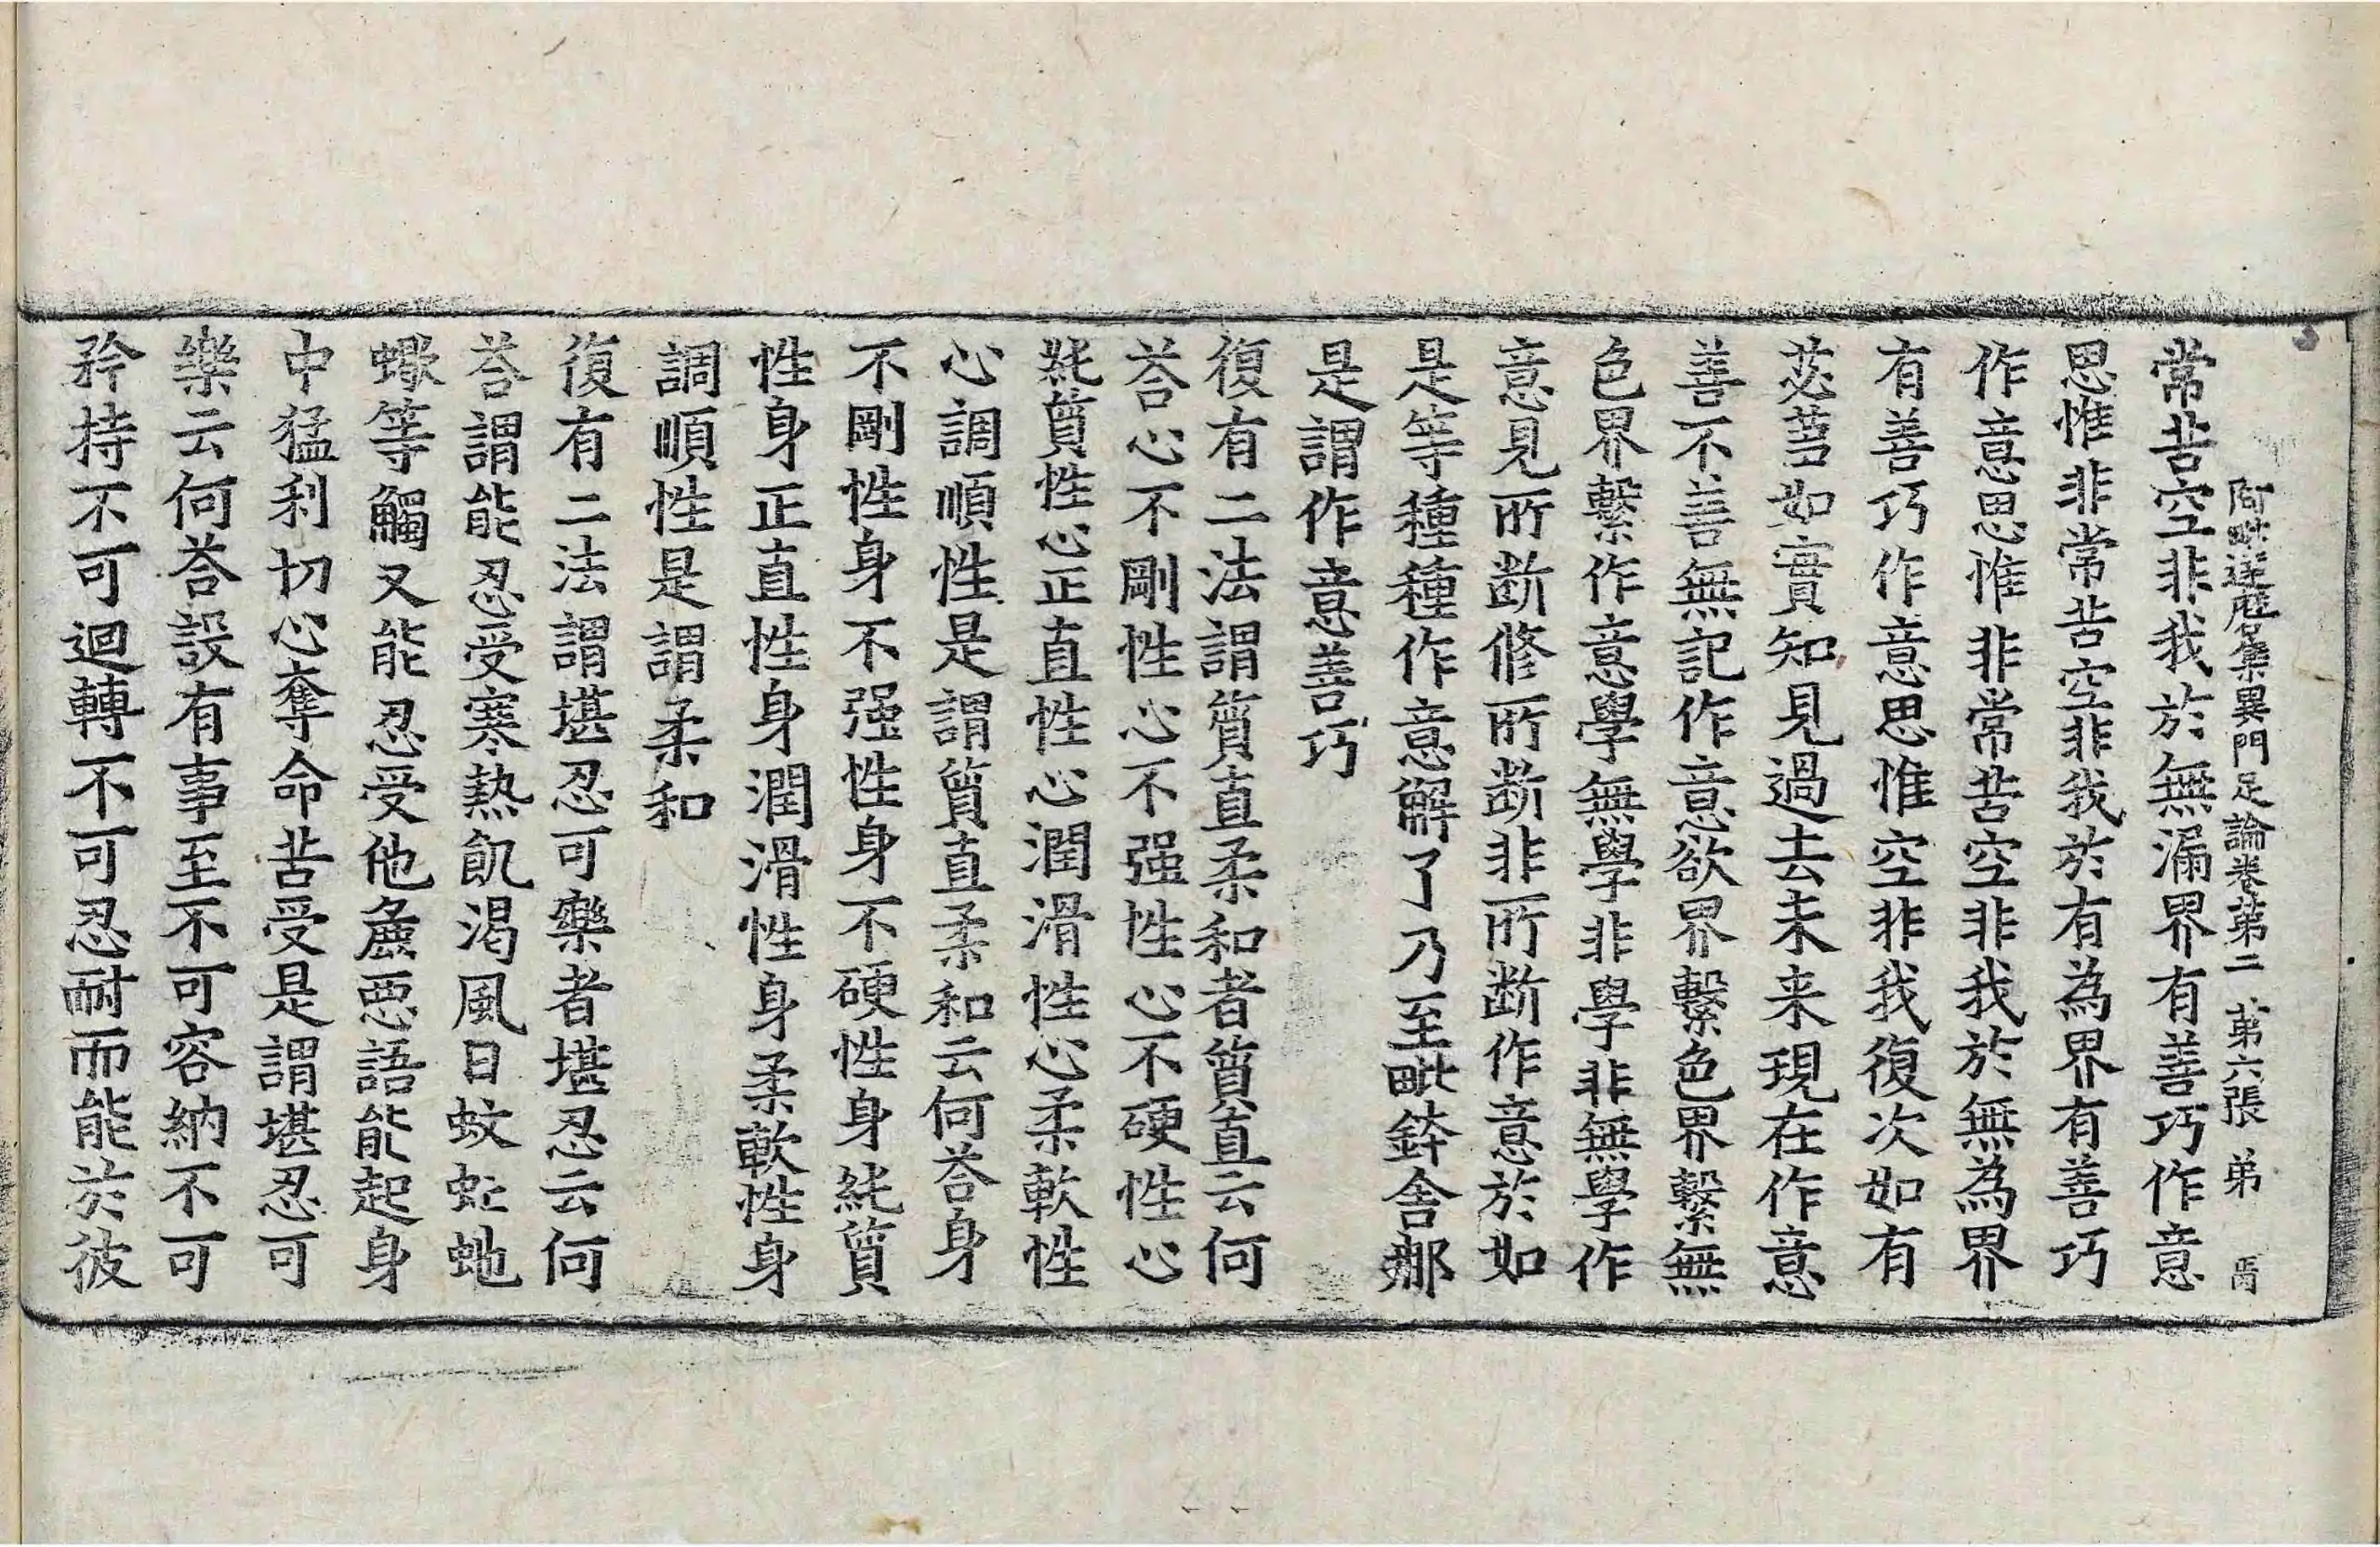 阿毗達磨集異門足論卷第二 第六張 弟
常苦空非我於無漏界有善巧作意
思惟非常苦空非我於有為界有善巧
作意思惟非常苦空非我於無為界
有善巧作意思惟空非我復次如有
苾蒭如實知見過去未來現在作意
善不善無記作意欲界繫色界繫無
色界繫作意學無學非學非無學作
意見所断修所断非所断作意於如
是等種種作意解了乃至毗鉢舍那
是謂作意善巧
復有二法謂質直柔和者質直云何
荅心不剛性心不强性心不硬性心
純質性心正直性心潤滑性心柔軟性
心調順性是謂質直柔和云何荅身
不剛性身不强性身不硬性身純質
性身正直性身潤滑性身柔軟性身
調順性是謂柔和
復有二法謂堪忍可樂者堪忍云何
荅謂能忍受寒熱飢渴風日蚊虻虵
蠍等觸又能忍受他麁惡語能起身
中猛利切心奪命苦受是謂堪忍可
樂云何荅設有事至不可容納不可
矜持不可迴轉不可忍耐而能於彼